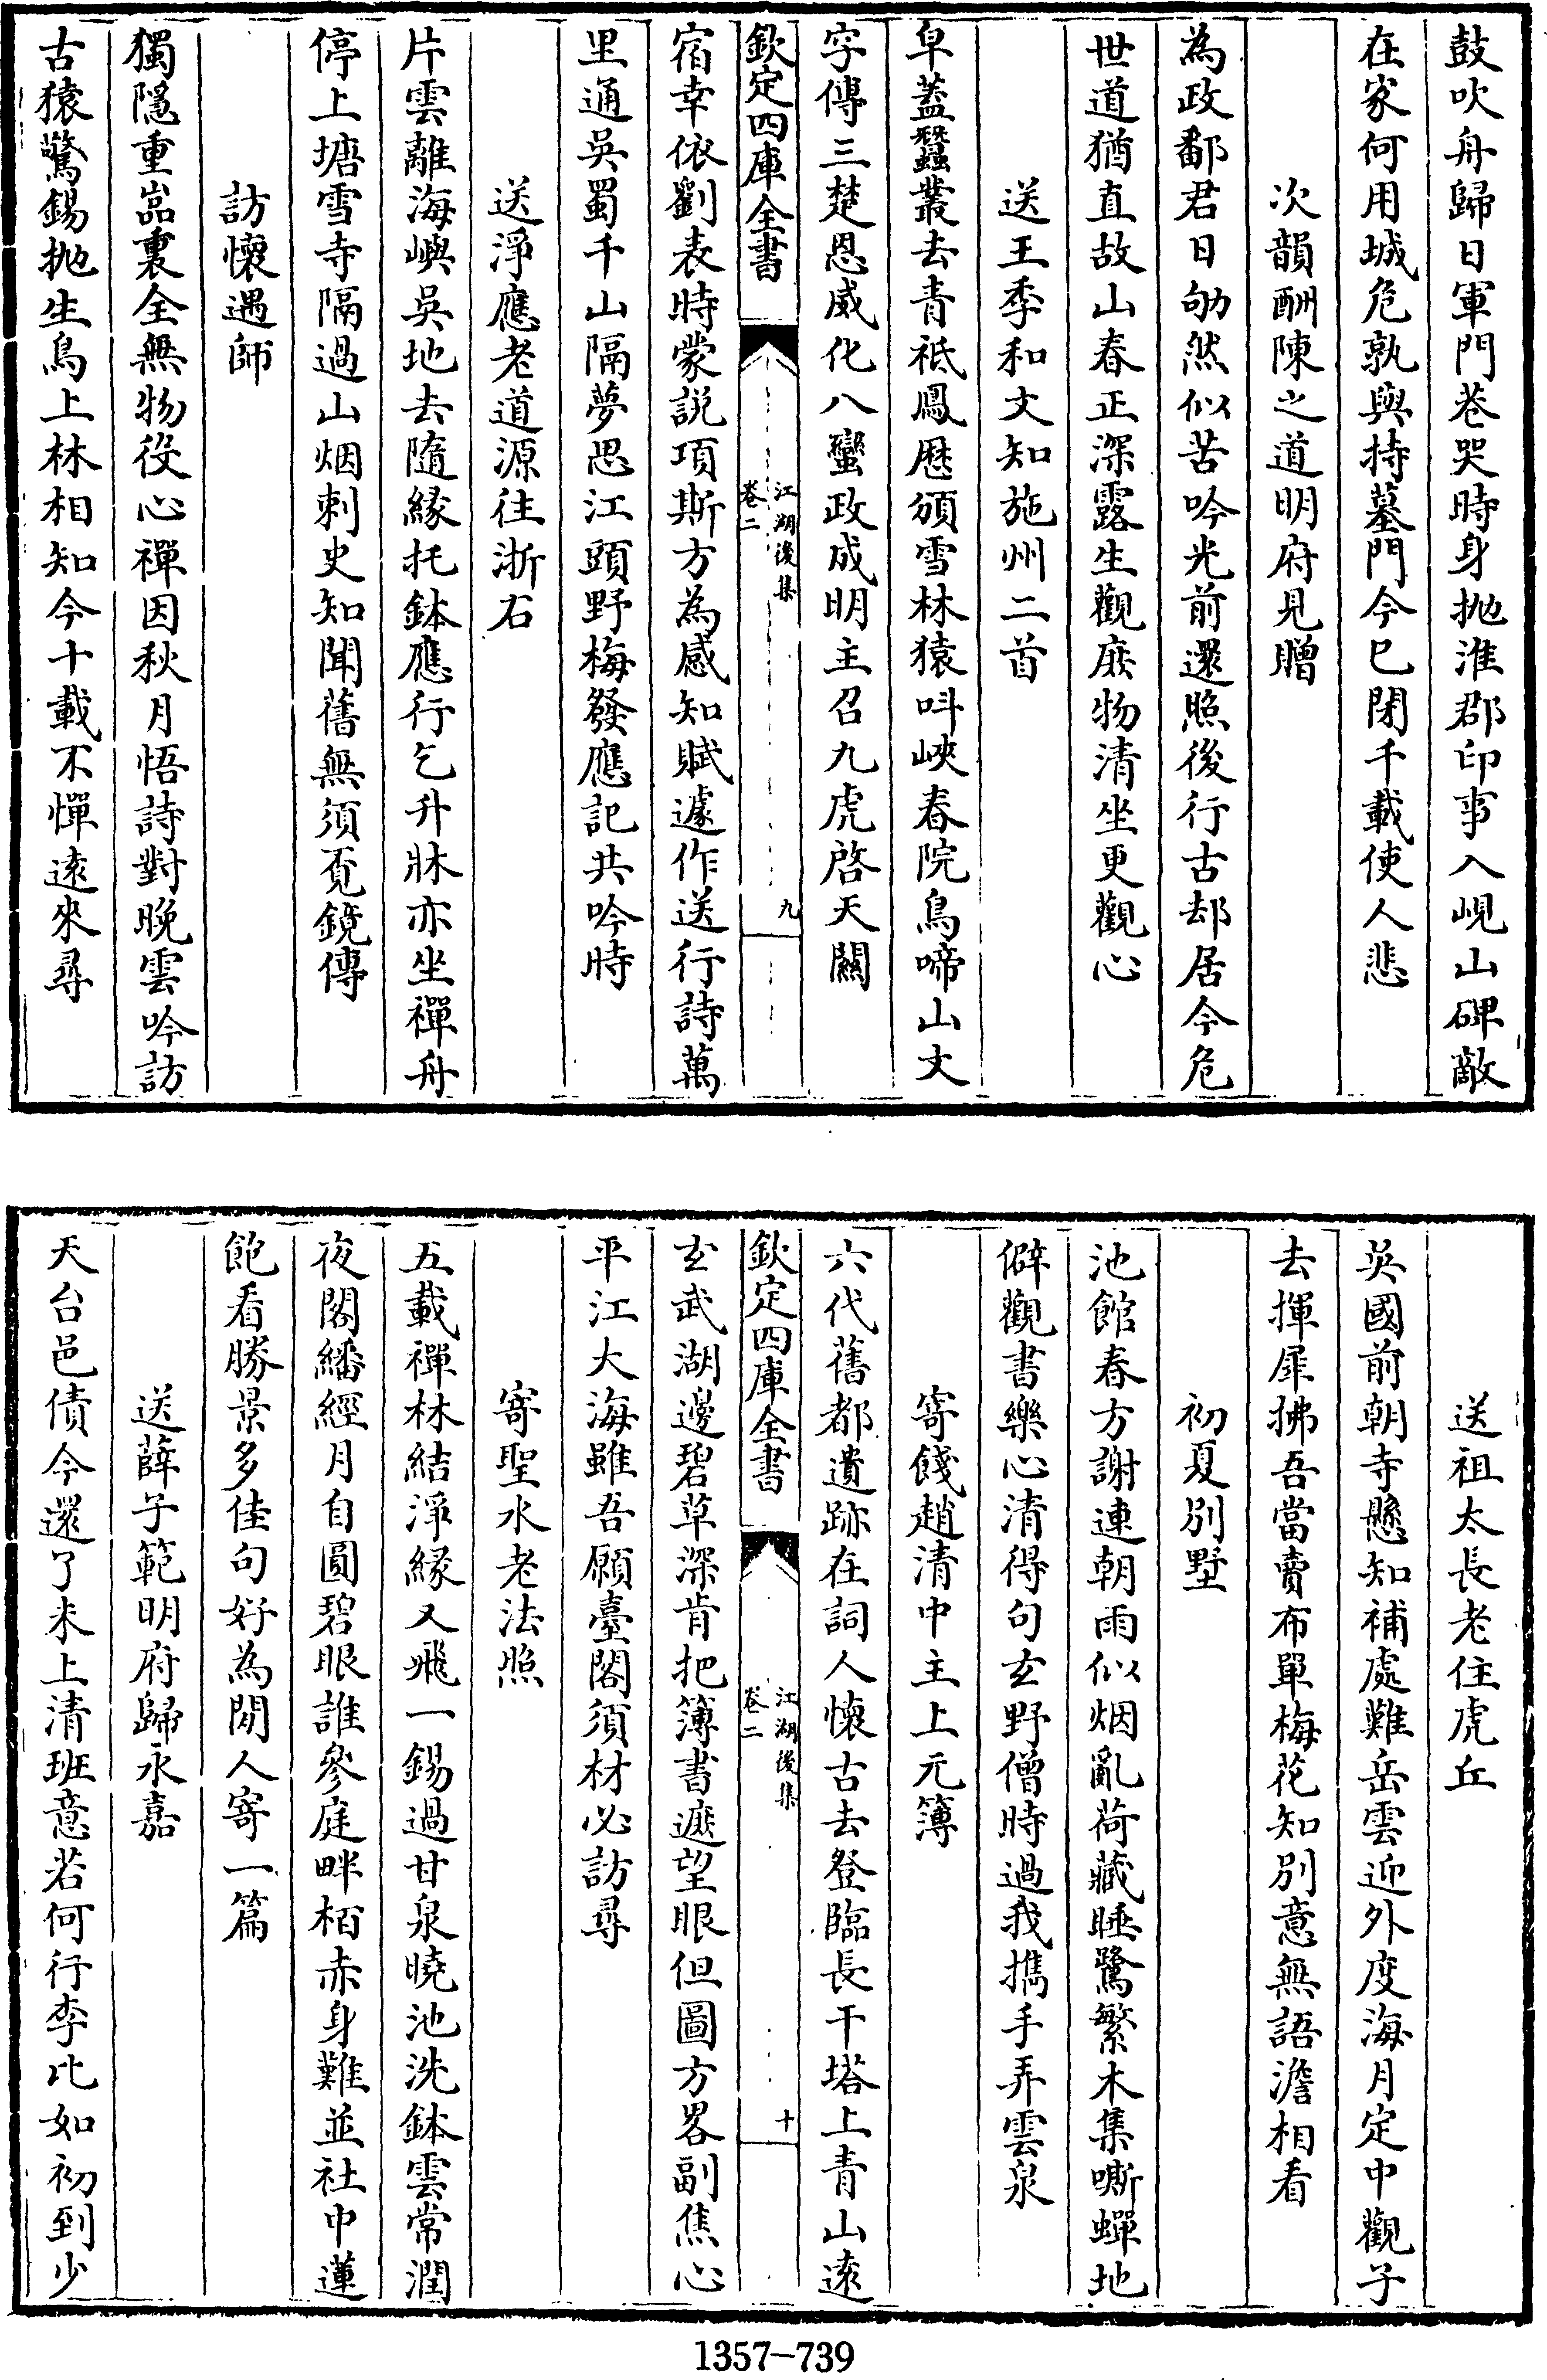 鼓吹舟歸日軍門巷哭時身抛淮郡印事入峴山碑敵
在家何用城危孰與持墓門今已閉千載使人悲
次韻酬陳之道明府見贈
為政鄱君日劬然似苦吟光前還照後行古却居今危
世道猶直故山春正深露生觀庶物清坐更觀心
送王季和文知施州二首
皁蓋蠶叢去青祗鳳厯頒雪林猿呌峽春院鳥啼山文
字傳三楚恩威化八蠻政成明主召九虎啓天關
欽定四庫全書
江湖後集
卷二
九
宿幸依劉表時蒙說項斯方為感知賦遽作送行詩萬
里通吳蜀千山隔夢思江頭野梅發應記共吟時
送淨應老道源往浙右
片雲離海嶼吳地去隨緣托鉢應行乞升牀亦坐禪舟
停上塘雪寺隔過山烟刺史知聞舊無須覔鏡傳
訪懷遇師
獨隱重嵓裏全無物役心禪因秋月悟詩對晩雲吟訪
古猿驚錫抛生鳥上林相知今十載不憚逺來尋
送祖太長老住虎丘
吳國前朝寺懸知補處難岳雲迎外度海月定中觀子
去揮犀拂吾當賣布單梅花知別意無語澹相看
初夏別墅
池館春方謝連朝雨似烟亂荷藏睡鷺繁木集嘶蟬地
僻觀書樂心清得句玄野僧時過我攜手弄雲泉
寄餞趙清中主上元簿
六代舊都遺跡在詞人懷古去登臨長干塔上青山逺
玄武湖邊碧草深肯把簿書遮望眼但圖方畧副焦心
平江大海雖吾願臺閣須材必訪尋
欽定四庫全書
江湖後集
卷二
十
寄聖水老法照
五載禪林結淨緣又飛一錫過甘泉曉池洗鉢雲常潤
夜閣繙經月自圓碧眼誰參庭畔栢赤身難並社中蓮
飽看勝景多佳句好為閒人寄一篇
送薛子範明府歸永嘉
天台邑債今還了未上清班意若何行李比如初到少
1357-739